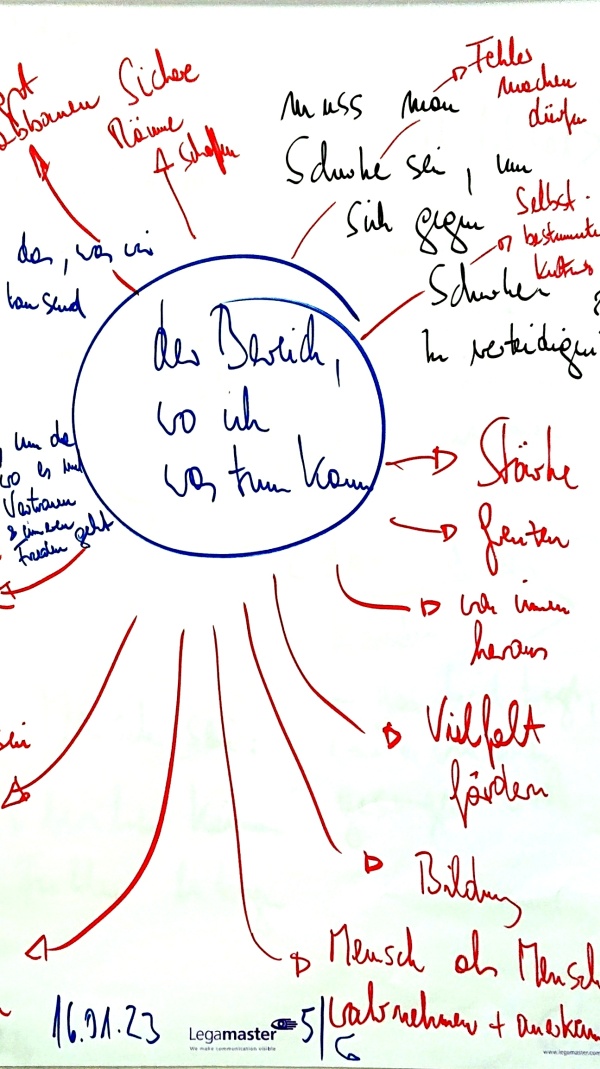 Sichere
Räume
schaffen
Fehler
machen
dürfen
muss man
Schwache sei, um
sich gegen
Schwachen
zu verteidigen
Selbst-
bestimmte
das, was wir
der Bereich,
wo ich
was tun kann
um da
wo es um
Vertrauen
& inneren
Frieden geht
Stärke
von innen
heraus
Vielfalt
fördern
Bildung
Mensch als Mensch
wahrnehmen + anerkenn
16.01.23
Legamaster
We make communication visible
5/6
www.legamaster.com